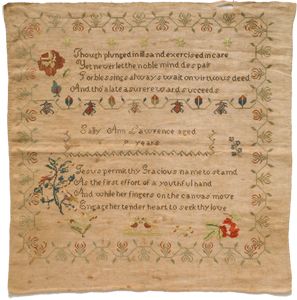 Though plunged in ills and exercised in care
Yet never let the noble mind despair
For blessings always wait on virtuous deed
And tho a late a sure reward succeeds
Sally Ann Lawrence aged
years
Jesus permit thy Gracious name to stand
As the first effort of a youthful hand
And while her fingers on the canvas move
Engage her tender heart to seek thy love